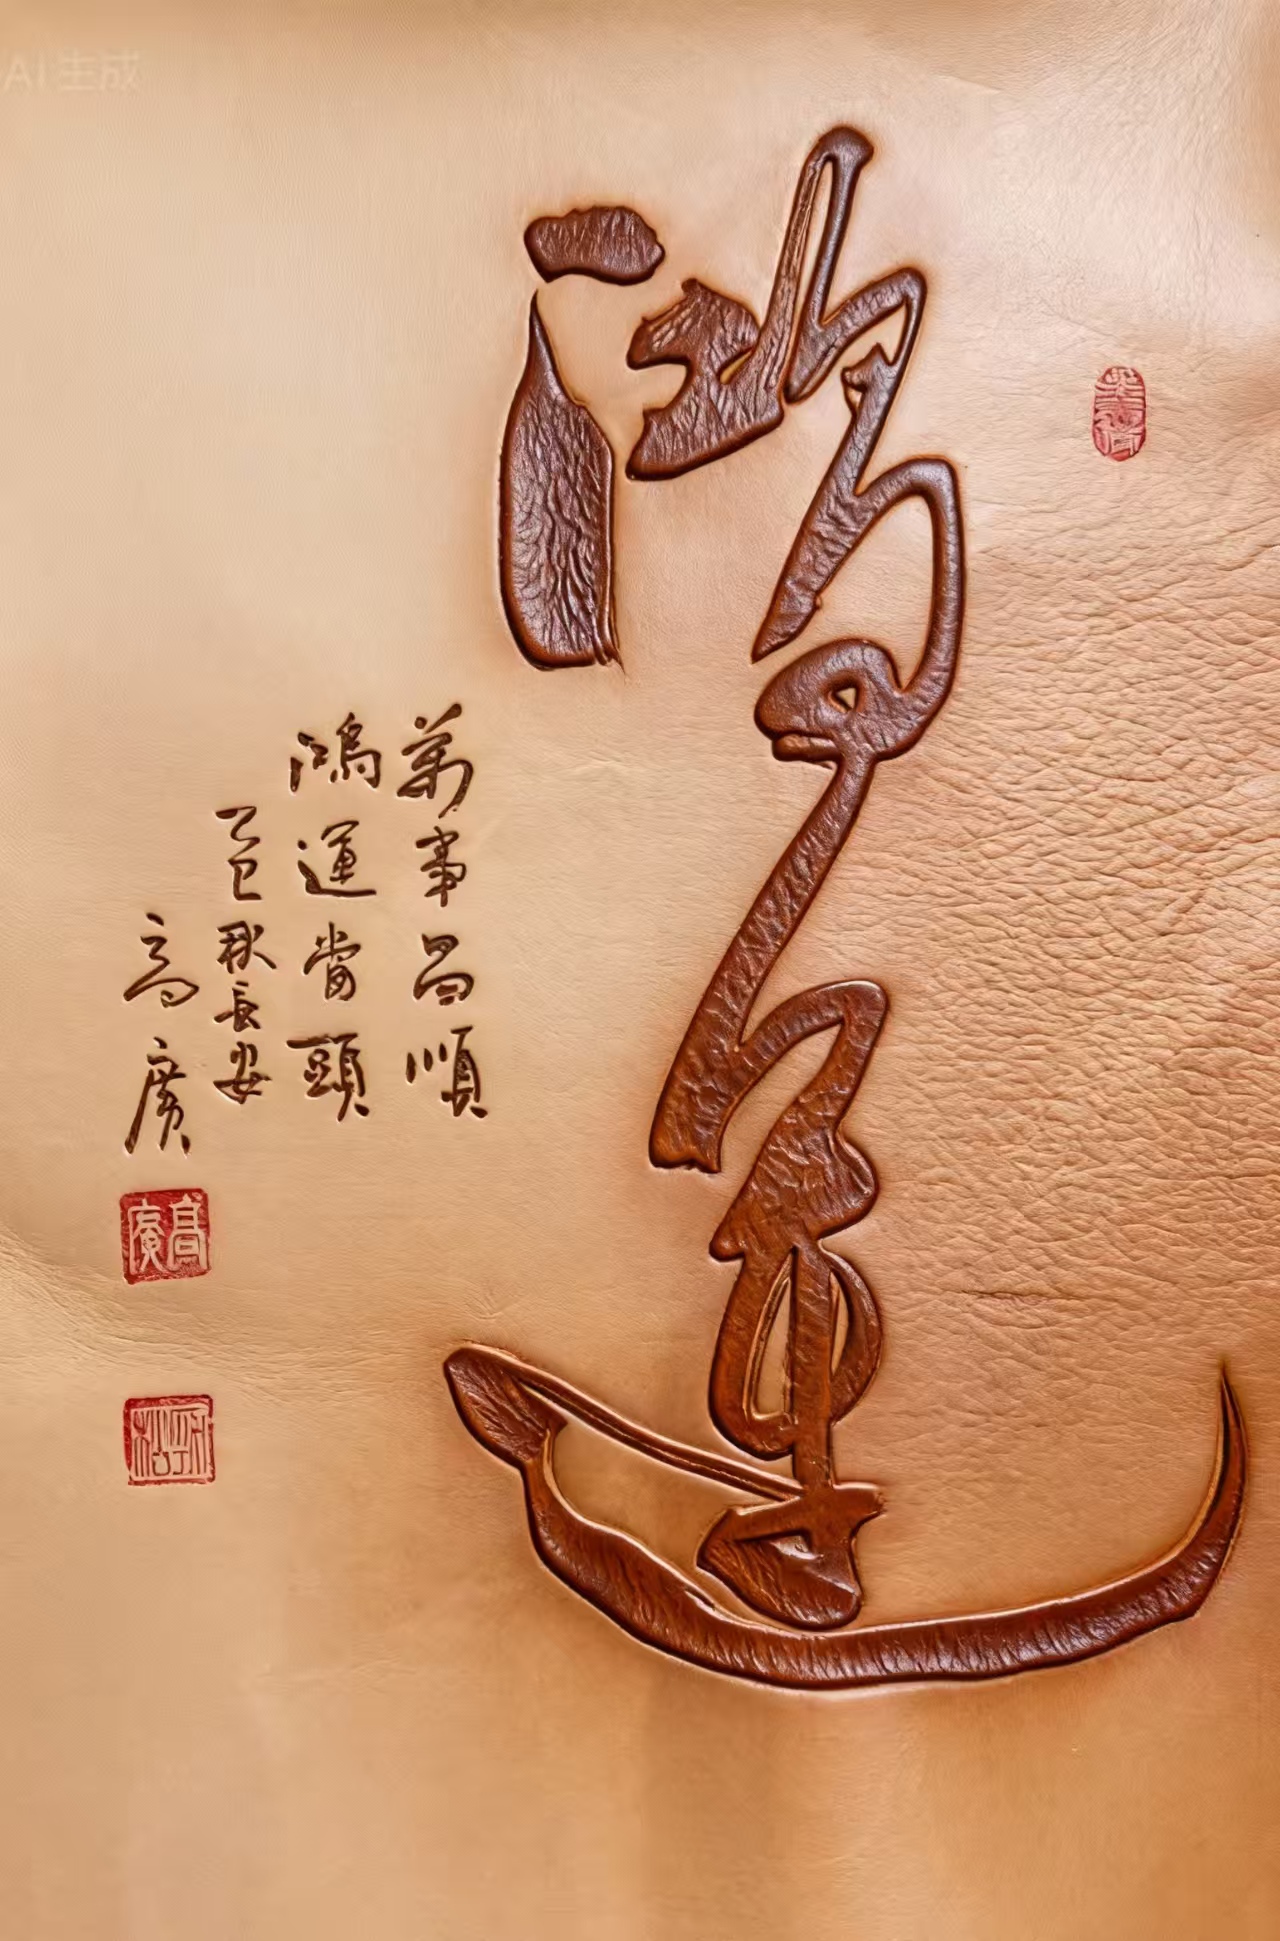 AI 生成
鴻運
萬事昌順
鴻運當頭
乙巳秋長安
高廣
高廣